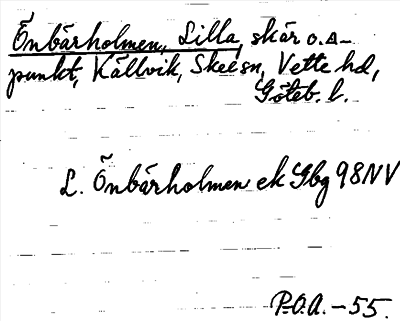 Önbärholmen, Lilla, skär o. a-
punkt, Källvik, Skee sn, Vette hd,
Göteb. l.
L. Önbärholmen ek Gbg 98NV
P.O.A. - 55.